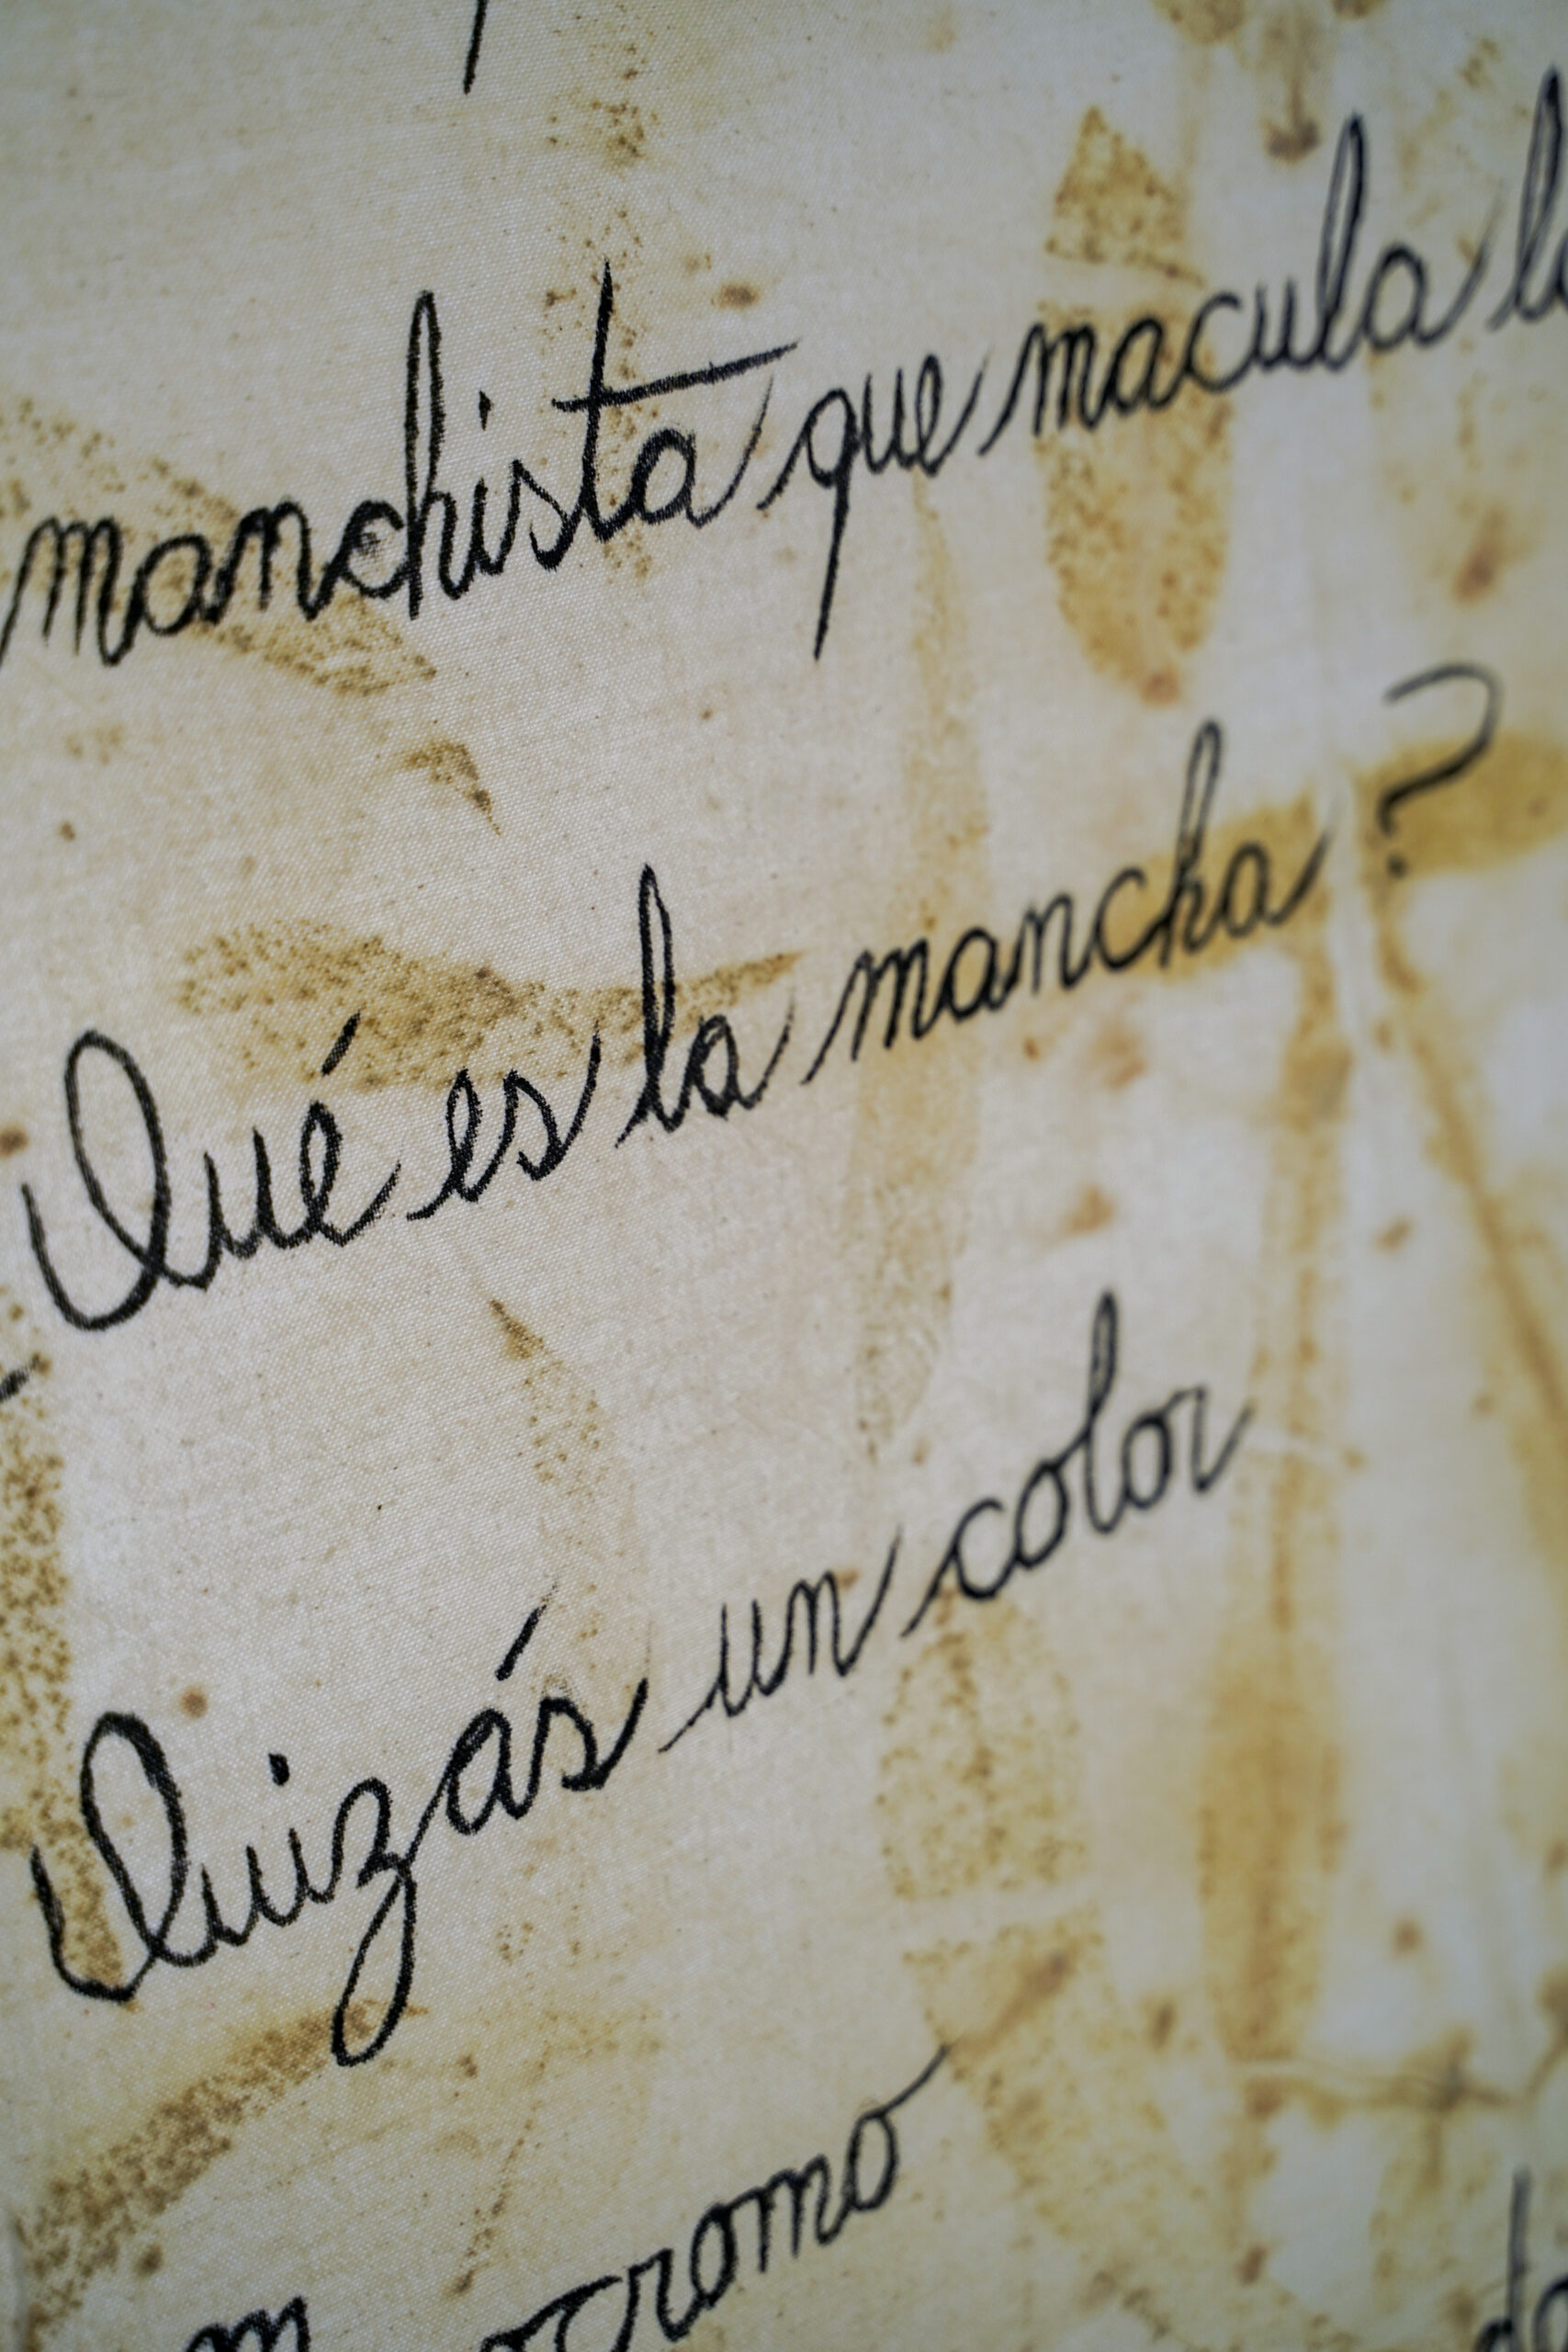 manchista que macula
Qué es la mancha?
Quizás un color